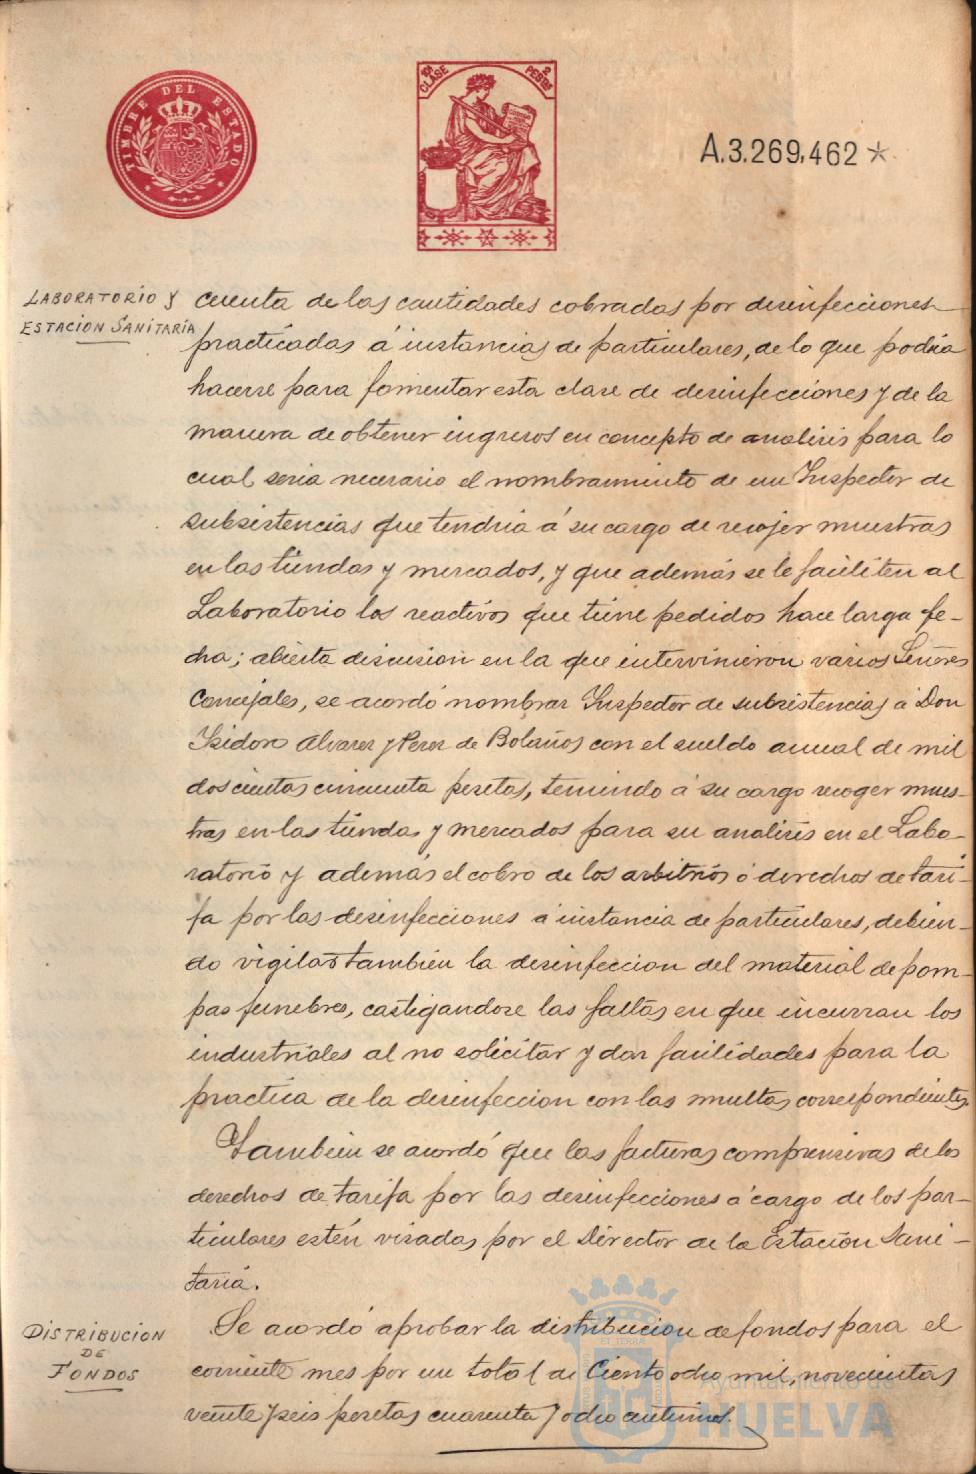 TIMBRE DEL ESTADO
10ª CLASE 2 PESETAS
A.3.269,462 *
LABORATORIO Y
ESTACION SANITARIA
cuenta de las cantidades cobradas por desinfecciones
practicadas á instancias de particulares, de lo que podria
hacerse para fomentar esta clase de desinfecciones y de la
manera de obtener ingresos en concepto de analisis para lo
cual seria necesario el nombramiento de un Inspector de
subsistencias que tendria á su cargo de recojer muestras
en las tiendas y mercados, y que además se le faciliten al
Laboratorio los reactivos que tiene pedidos hace larga fe-
cha; abierta discusion en la que intervinieron varios Señores
Concejales, se acordó nombrar Inspector de subsistencias á Don
Isidoro Alvarez y Perez de Bolaños con el sueldo anual de mil
doscientas cincuenta pesetas, teniendo á su cargo recoger mues-
tras en las tiendas y mercados para su analisis en el Labo-
ratorio y además el cobro de los arbitrios ó derechos de tari-
fa por las desinfecciones á instancia de particulares, debien-
do vigilar tambien la desinfeccion del material de pom-
pas funebres, castigandose las faltas en que incurran los
industriales al no solicitar y dar facilidades para la
practica de la desinfeccion con las multas correspondientes.
Tambien se acordó que las facturas comprensivas de los
derechos de tarifa por las desinfecciones á cargo de los par-
ticulares estén visadas por el Director de la Estacion Sani-
taria.
DISTRIBUCION
DE
FONDOS
Se acordó aprobar la distribucion de fondos para el
corriente mes por un total de Ciento ocho mil, novecientas
veinte y seis pesetas cuarenta y ocho centimos.
Ayuntamiento de
HUELVA